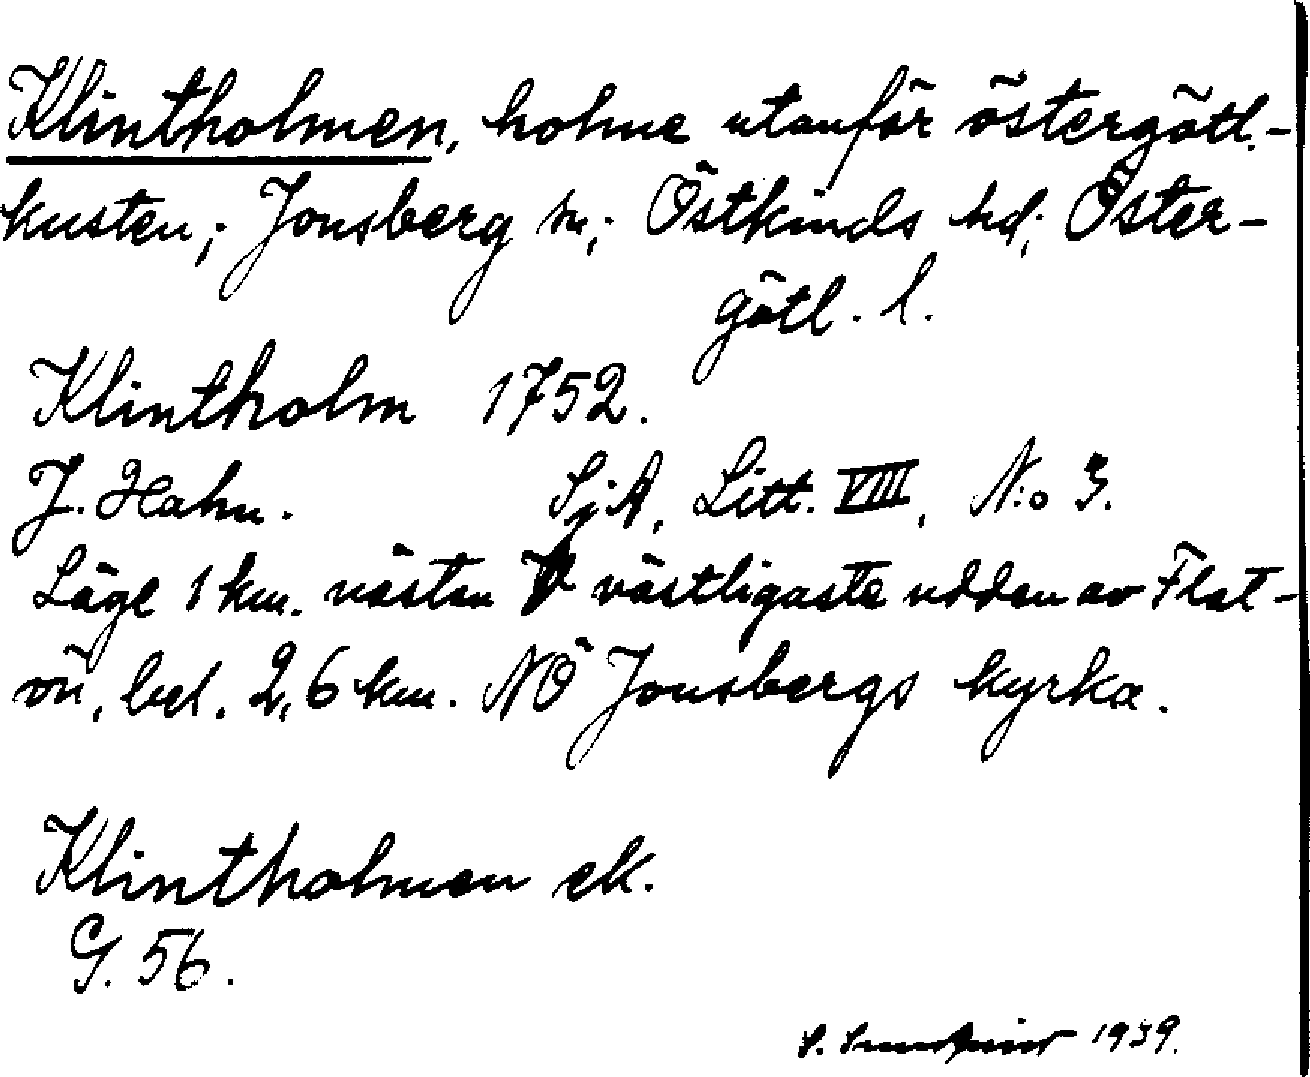 Klintholmen, holme utanför östergötl.-
kusten; Jonsberg sn; Östkinds hd; Öster-
götl. l.
Klintholm 1752.
J. Hahn. SjA, Litt. VIII, N:o 3.
Läge 1 km. nästan V västligaste udden av Flat-
ön, bel. 2,6 km. NÖ Jonsbergs kyrka.
Klintholmen ek.
G. 56.
S. 1939.